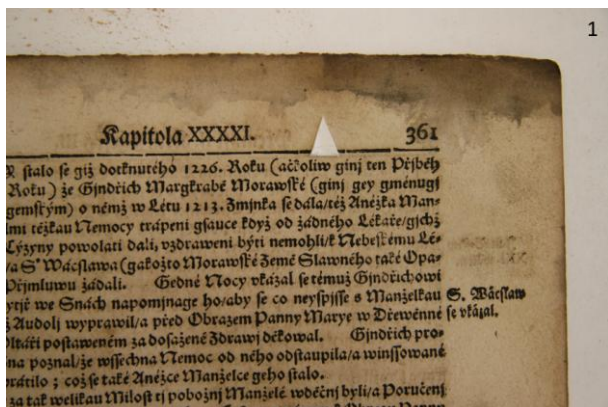 1
Kapitola XXXXI. 361
stalo se giž dotknutého 1226. Roku (ačkoliw ginj ten Přjběh
Roku) že Gjndřich Margkrabě Morawské (ginj gey gménugj
gemským) o němž w Létu 1213. Zmjnka se dála/též Anéžka Man-
lmi těžkau Nemocy trápeni gsauce když od žádného Lékaře/gichž
Cyzyny powolati dali, vzdraweni býti nemohli/k Nebeskému Lé-
/a S° Wácslawa (gakožto Morawské Země Slawného také Opa-
Přjmluwu žádali. Gedné Nocy vkázal se témuž Gjndřichowi
we Snách napomjnage ho/aby se co neyspjsse s Manželkau
Audolj wyprawil/a před Obrazem Panny Marye w Dřewěnné
Oltáři postaweném za dosažené Zdrawj děkowal. Gjndřich pro-
na poznal/že wssechna Nemoc od něho odstaupila/a winssowané
wrátilo ; což se také Anéžce Manželce geho stalo.
za tak welikau Milost tj pobožnj Manželé wděčnj byli/a Poručenj
S. Wácslaw
se vkázal.